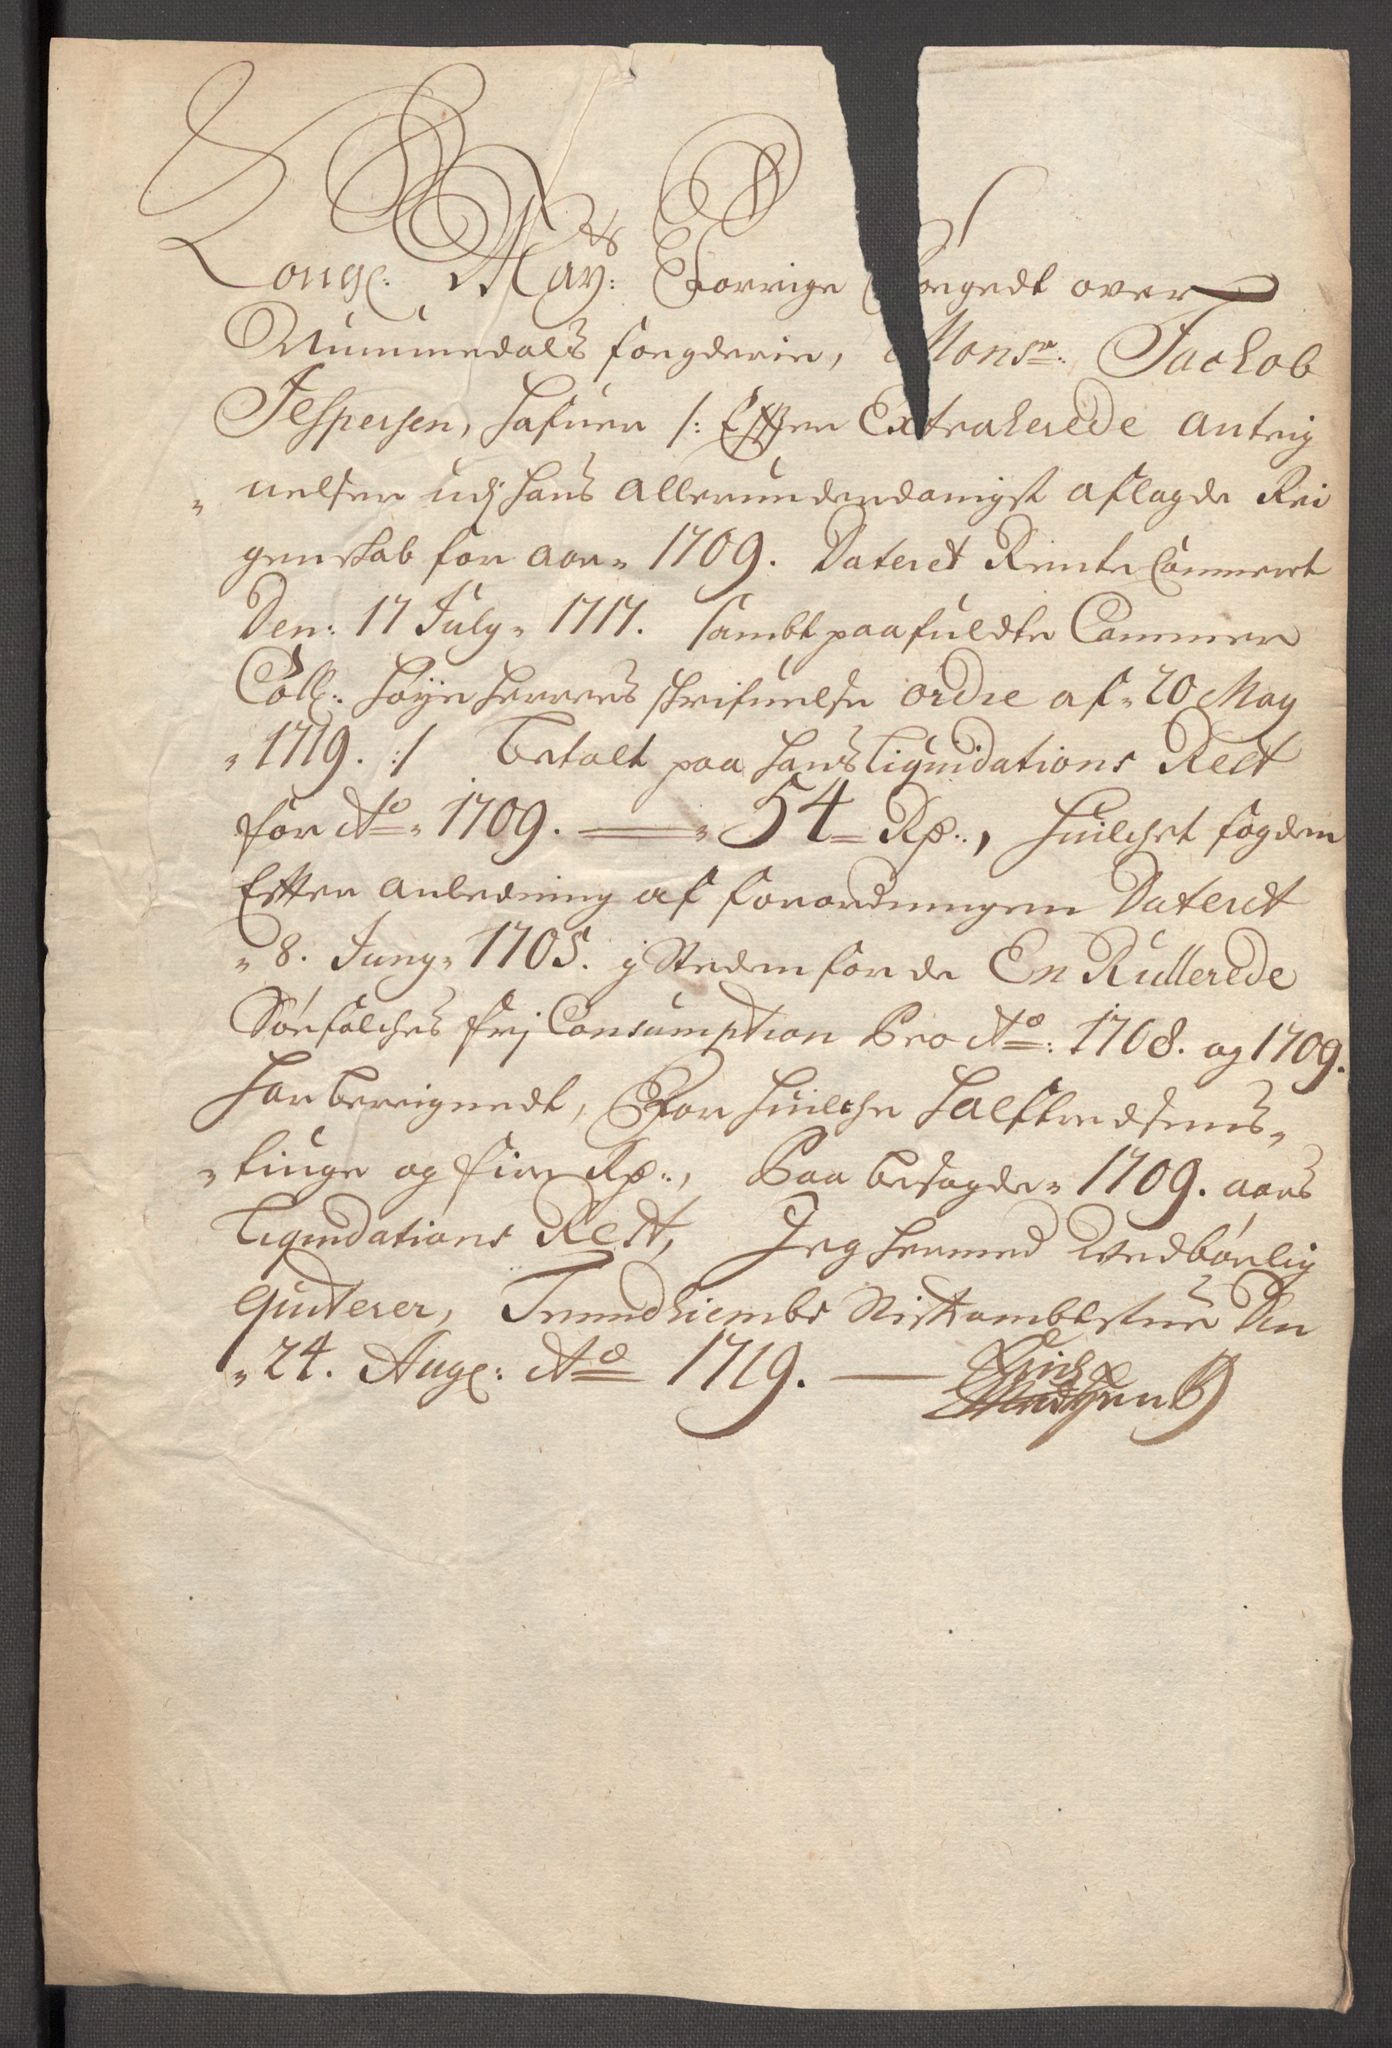 Kongl: Mayts: Forrige Foegedt over
Nummedals fougderie, Monsr: Jackob
Jespersen, hafuer /: Effter Extraherede Anteig
nelser udj hans allerunderdanigst aflagde Rei
genskab for aar 1709. Dateret Rente Cammeret
Den: 17 July 1717. sambt paafuldte Cammer
Coll: høye herrers skrifuelse ordre af 20 May
1719. :/ betalt paa hans Liquidations Rest
for Ao 1709. — 54 Rd:, huilchet fogden
Effter anledning af forordningen Dateret
8. Juny 1705. j Steden for de En Rullerede
Søefolches frj Consumption Pro Ao: 1708. og 1709.
har bereignedt, For huilche halftredsens-
tiuge og fire Rd:, Paa besagde 1709. aars
Liqvidations Rest, Jeg hermed Wedbørlig
Quiterer, Trundhiembs Stiftambtstue Den
24. Aug: Ao 1719. —